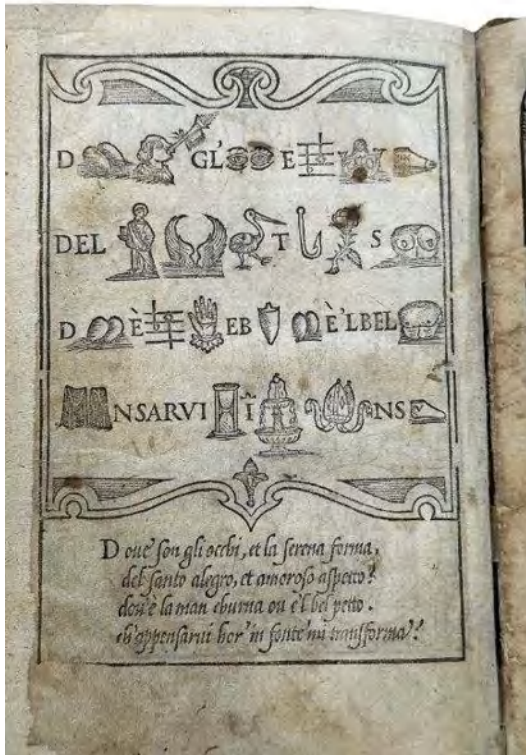 D GL' E
DEL T S
D È EB È 'LBEL
NSARVI Ĩ NS
D oue' son gli occhi, et la serena forma,
del santo alegro, et amoroso aspetto?
dou'è la man eburna ou è'l bel petto.
ch'appensarui hor' in fonte' mi transforma?